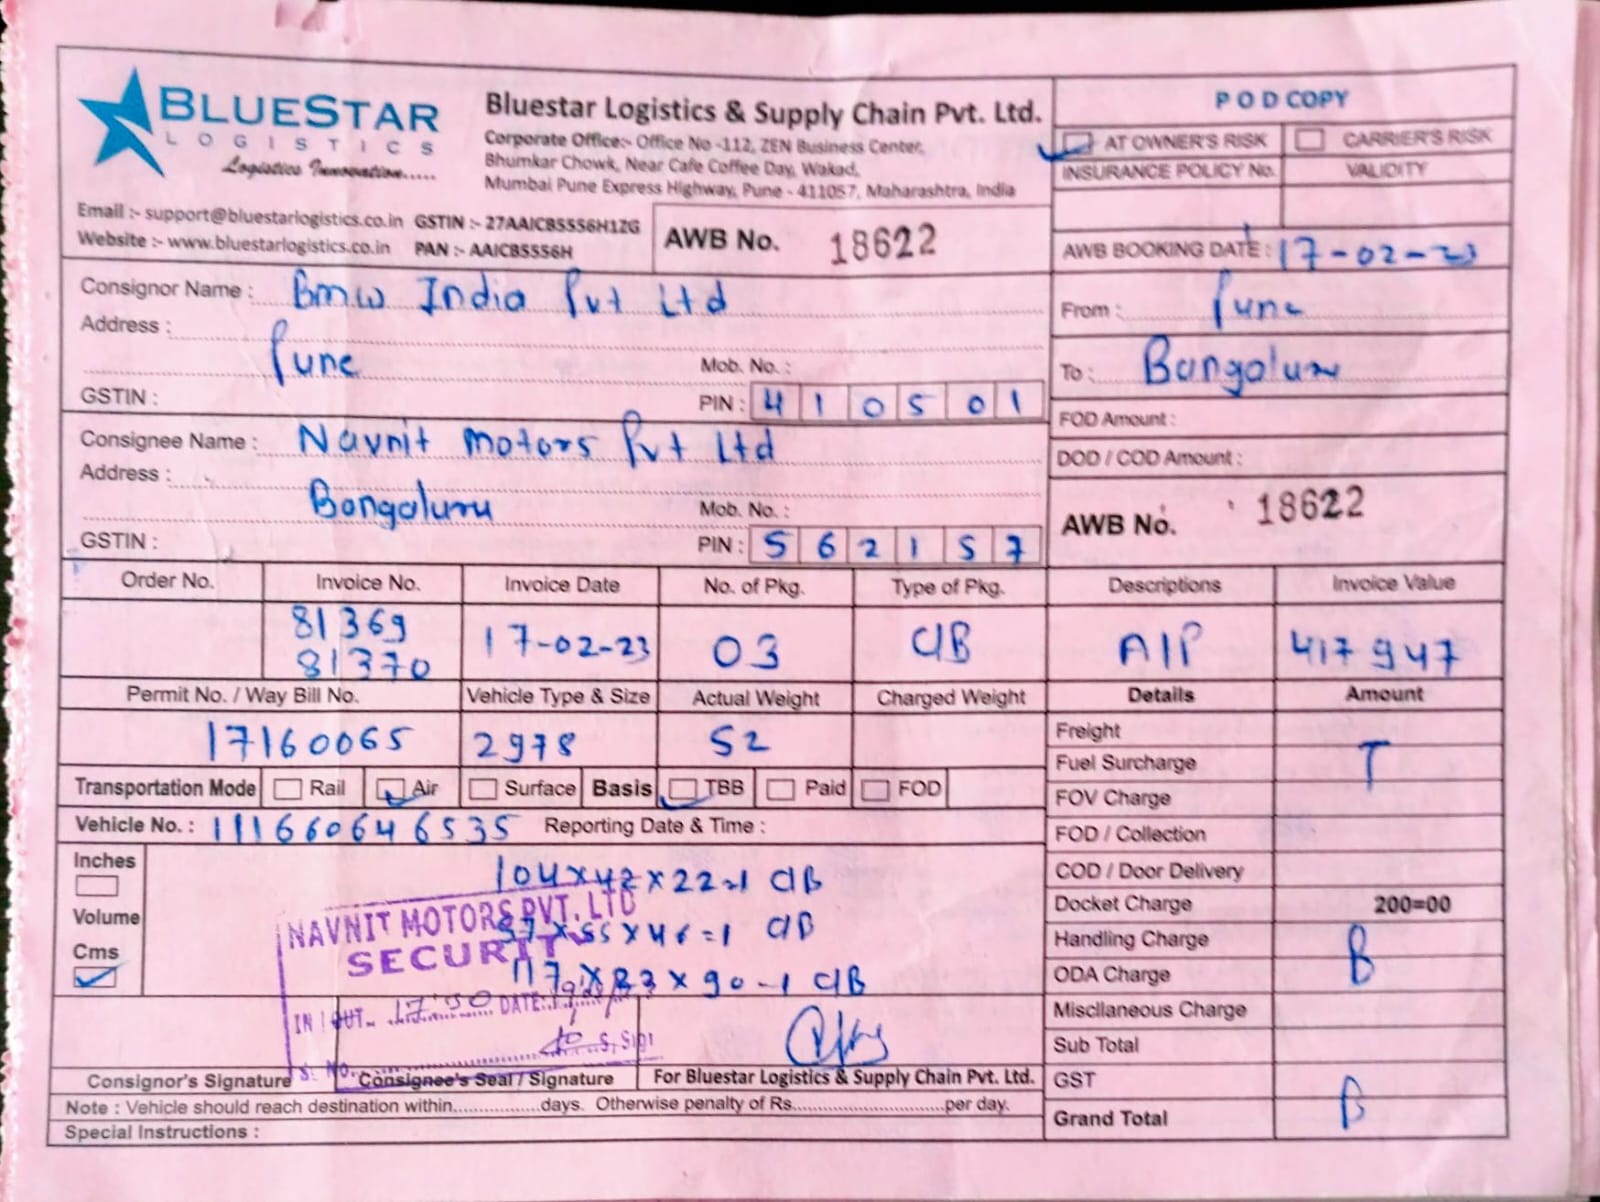 BLUESTAR
LOGISTICS
Logistics Innovation.....
Bluestar Logistics & Supply Chain Pvt. Ltd.
Corporate Office:- Office No -112, ZEN Business Center,
Bhumkar Chowk, Near Cafe Coffee Day, Wakad,
Mumbai Pune Express Highway, Pune - 411057, Maharashtra, India
Email :- support@bluestarlogistics.co.in GSTIN :- 27AAICB5556H1ZG
Website :- www.bluestarlogistics.co.in PAN :- AAICB5556H
AWB No. 18622
POD COPY
AT OWNER'S RISK CARRIER'S RISK
INSURANCE POLICY No. VALIDITY
AWB BOOKING DATE : 17-02-23
From : Pune
To : Bangaluru
FOD Amount :
DOD / COD Amount :
AWB No. 18622
Consignor Name : Bmw India Pvt Ltd
Address :
Pune Mob. No. :
GSTIN : PIN : 410501
Consignee Name : Navnit motors Pvt Ltd
Address :
Bangaluru Mob. No. :
GSTIN : PIN : 562157
Order No. Invoice No. Invoice Date No. of Pkg. Type of Pkg. Descriptions Invoice Value
81369
81370 17-02-23 03 C/B A/P 417947
Permit No. / Way Bill No. Vehicle Type & Size Actual Weight Charged Weight Details Amount
17160065 2978 52
Transportation Mode Rail Air Surface Basis TBB Paid FOD
Vehicle No. : 111660646535 Reporting Date & Time :
Inches
Volume
Cms
104x42x22=1 C/B
x55x46=1 C/B
117x83x90-1 C/B
NAVNIT MOTORS PVT. LTD
SECURITY
IN / OUT. 17:50 DATE:
S. NO. S, Sign
Consignor's Signature Consignee's Seal / Signature For Bluestar Logistics & Supply Chain Pvt. Ltd.
Note : Vehicle should reach destination within..................days. Otherwise penalty of Rs................................per day.
Special Instructions :
Freight
Fuel Surcharge T
FOV Charge
FOD / Collection
COD / Door Delivery
Docket Charge 200=00
Handling Charge B
ODA Charge
Miscllaneous Charge
Sub Total
GST
Grand Total B